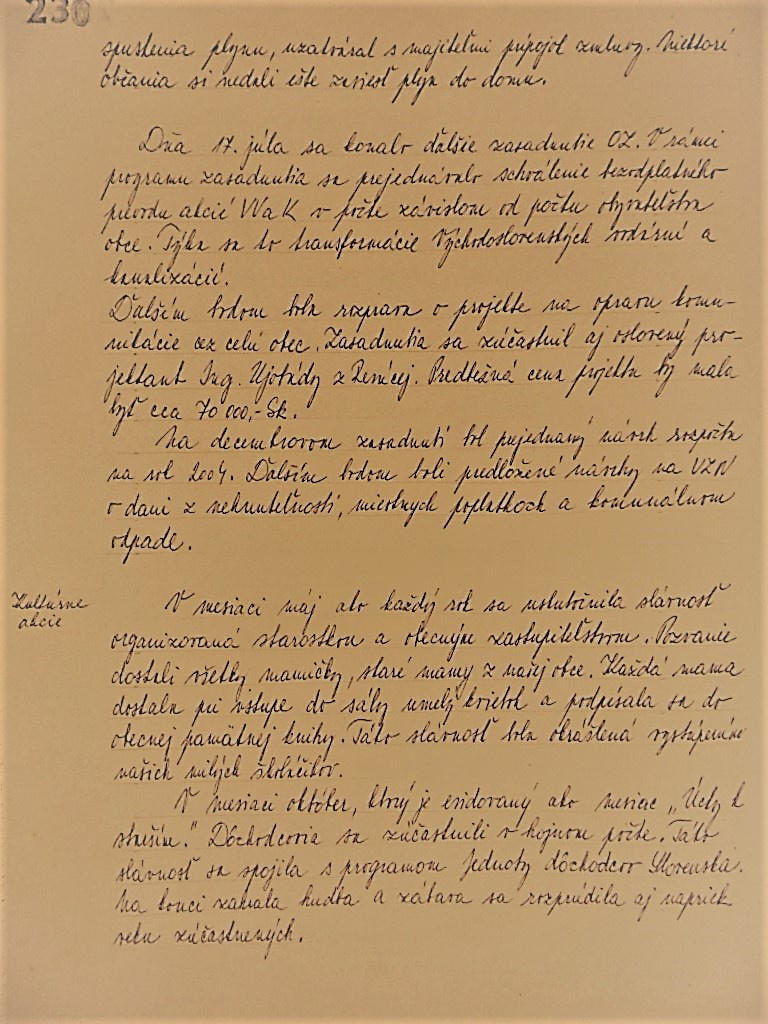 230
spustenia plynu, uzatváral s majiteľmi prípojok zmluvy. Niektoré
občania si nedali ešte zaviesť plyn do domu.
Dňa 17. júla sa konalo ďalšie zasadnutie OZ. V rámci
programu zasadnutia sa prejednávalo schválenie bezodplatného
prevodu akcií VVaK v počte závislom od počtu obyvateľstva
obce. Týka sa to transformácie Východoslovenských vodární a
kanalizácií.
Ďalším bodom bola rozprava o projekte na opravu komu-
nikácie cez celú obec. Zasadnutia sa zúčastnil aj oslovený pro-
jektant Ing. z. Predbežná cena projektu by mala
byť cca 70 000,- Sk.
Na decembrovom zasadnutí bol prejednaný návrh rozpočtu
na rok 2004. Ďalším bodom boli predložené návrhy na VZN
o dani z nehnuteľností, miestnych poplatkoch a komunálnom
odpade.
Kultúrne
akcie
V mesiaci máj ako každý rok sa uskutočnila slávnosť
organizovaná starostkou a obecným zastupiteľstvom. Pozvanie
dostali všetky mamičky, staré mamy z našej obce. Každá mama
dostala pri vstupe do sály umelý kvietok a podpísala sa do
obecnej pamätnej knihy. Táto slávnosť bola okrášlená vystúpením
našich milých škôlkčikov.
V mesiaci október, ktorý je evidovaný ako mesiac „Úcty k
starším." Dôchodcovia sa zúčastnili v hojnom počte. Táto
slávnosť sa spojila s programom Jednoty dôchodcov Slovenska.
Na konci zahrala hudba a zábava sa rozprúdila aj napriek
veku zúčastnených.